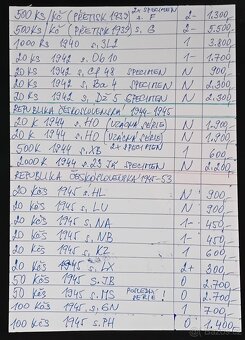 500 KS/KČ (PŘETISK 1939) 2x SPECIMEN s. F 2- 1.300,-
500 KS/KČ (PŘETISK 1939) s. G 2- 5.500,-
1000 KS 1940 s. 3L2 1 3.800,-
20 KS 1942 s. Ob 10 1- 1.700,-
20 KS 1942 s. Cf 48 SPECIMEN N 900,-
20 KS 1942 s. Ba 4 SPECIMEN N 2.300,-
20 KS 1942 s. Dž 5 SPECIMEN N 2.300,-
REPUBLIKA ČESKOSLOVENSKÁ 1944-1945
20 K 1944 s. HO (VZÁCNÁ SÉRIE) N 1.900,-
20 K 1944 s. HO (VZÁCNÁ SÉRIE) N 1.900,-
500 K 1944 s. XB 2x SPECIMEN 1 600,-
2000 K 1944 s. 23 SPECIMEN N 2.200,-
REPUBLIKA ČESKOSLOVENSKÁ 1945-53
20 KČS 1945 s. HL N 900,-
20 KČS 1945 s. LU N 900,-
20 KČS 1945 s. NA 1- 450,-
20 KČS 1945 s. NB 1- 450,-
20 KČS 1945 s. KZ 1 600,-
20 KČS 1945 s. LX 2+ 300,-
50 KČS 1945 s. JB 0 2.700,-
50 KČS 1945 s. MS POSLEDNÍ SÉRIE! 0 2.700,-
100 KČS 1945 s. GN 1 700,-
100 KČS 1945 s. PH 0 1.400,-